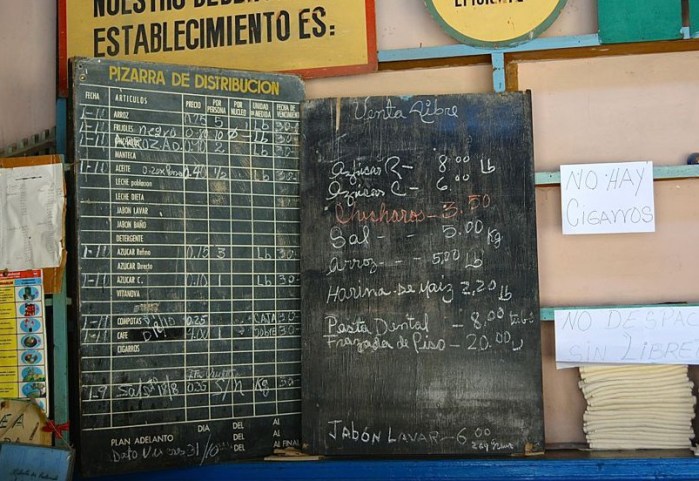 NUESTRO DEBER
ESTABLECIMIENTO ES:
EFICIENTE
PIZARRA DE DISTRIBUCION
FECHA ARTICULOS PRECIO POR PERSONA POR NUCLEO UNIDAD MEDIDA FECHA DE VENCIMIENTO
1-11 ARROZ 5 Lb 30-
1-11 FRIJOLES Negro Lb 30-
Lb 30-
MANTECA
1-11 ACEITE 0.40 1/2 Lb 30-
LECHE poblacion
LECHE DIETA
JABON LAVAR
JABON BAÑO
DETERGENTE
1-11 AZUCAR Refino 0.15 3 Lb 30-
AZUCAR Directo
1-11 AZUCAR C. 0.10 1 Lb 30-
VITANOVA
1-11 COMPOTAS 0.25 CAJA 30-
1-11 CAFE 1 Sobre 30-
CIGARROS
1-9 Sal 0.35 S/N Kg 30-
PLAN ADELANTO DIA DEL AL
DEL AL
31/10 DEL AL FINAL
Venta Libre
Azúcar R- 8.00 Lb
Azúcar C- 6.00
Chicharos - 3.50
Sal - - 5.00 Kg
Arroz - - - 5.00 Lb
Harina de maiz 2,20 Lb
Pasta Dental - 8,00 tubo
Frazada de Piso - 20.00 U
JABÓN LAVAR - 6.00
NO HAY
CIGARROS
NO DESPAC
SIN LIBRE